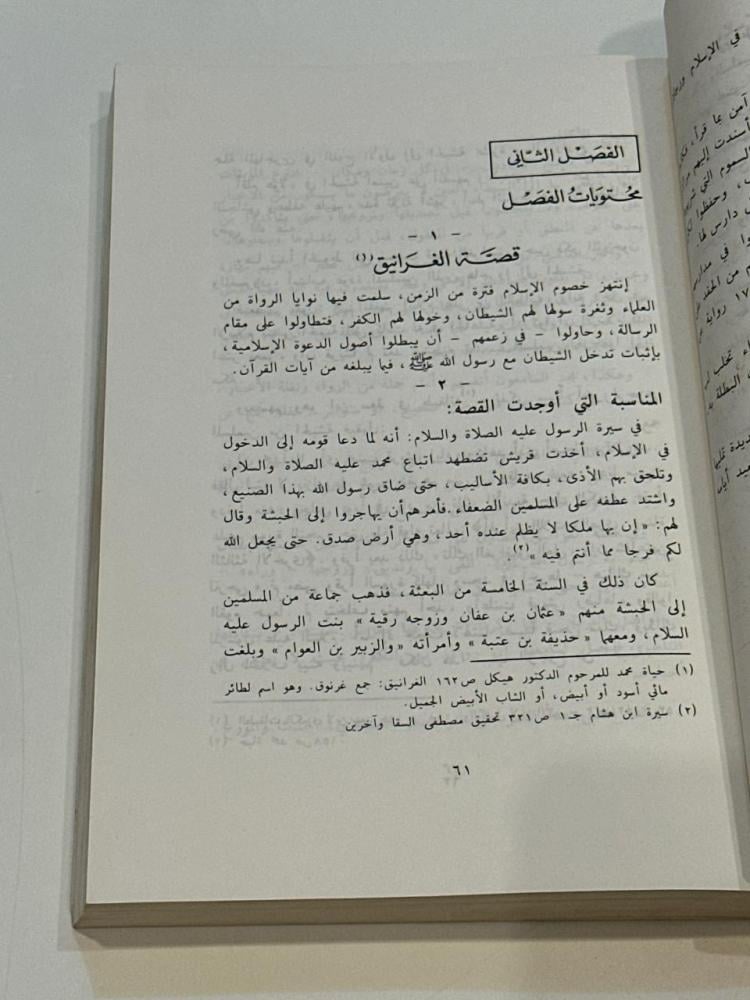 الفصل الثاني
محتويات الفصل
- ١ -
قصة الغرانيق(١)
إنتهز خصوم الإسلام فترة من الزمن، سلمت فيها نوايا الرواة من
العلماء وثغرة سولها لهم الشيطان، وخولها لهم الكفر، فتطاولوا على مقام
الرسالة، وحاولوا - في زعمهم - أن يبطلوا أصول الدعوة الإسلامية،
بإثبات تدخل الشيطان مع رسول الله ﷺ، فيما يبلغه من آيات القرآن.
- ٢ -
المناسبة التي أوجدت القصة:
في سيرة الرسول عليه الصلاة والسلام: أنه لما دعا قومه إلى الدخول
في الإسلام، أخذت قريش تضطهد اتباع محمد عليه الصلاة والسلام،
وتلحق بهم الأذى، بكافة الأساليب، حتى ضاق رسول الله بهذا الصنيع،
واشتد عطفه على المسلمين الضعفاء. فأمرهم أن يهاجروا إلى الحبشة وقال
لهم: « إن بها ملكا لا يظلم عنده أحد، وهي أرض صدق. حتى يجعل الله
لكم فرجا مما أنتم فيه »(٢).
كان ذلك في السنة الخامسة من البعثة، فذهب جماعة من المسلمين
إلى الحبشة منهم « عثمان بن عفان وزوجه رقية » بنت الرسول عليه
السلام، ومعهما « حذيفة بن عتبة » وأمرأته « والزبير بن العوام » وبلغت
(١) حياة محمد للمرحوم الدكتور هيكل ص١٦٢ الغرانيق: جمع غرنوق. وهو اسم لطائر
مائي أسود أو أبيض، أو الشاب الأبيض الجميل.
(٢) سيرة ابن هشام جـ١ ص٣٢١ تحقيق مصطفى السقا وآخرين
٦١
في الإسلام
آمن بما قرأ، فكان
أسندت إليهم
السموم التي
، وحفظوا
دارس لها.
وا في
م من الحقد
١٧ رواية
، البطلة